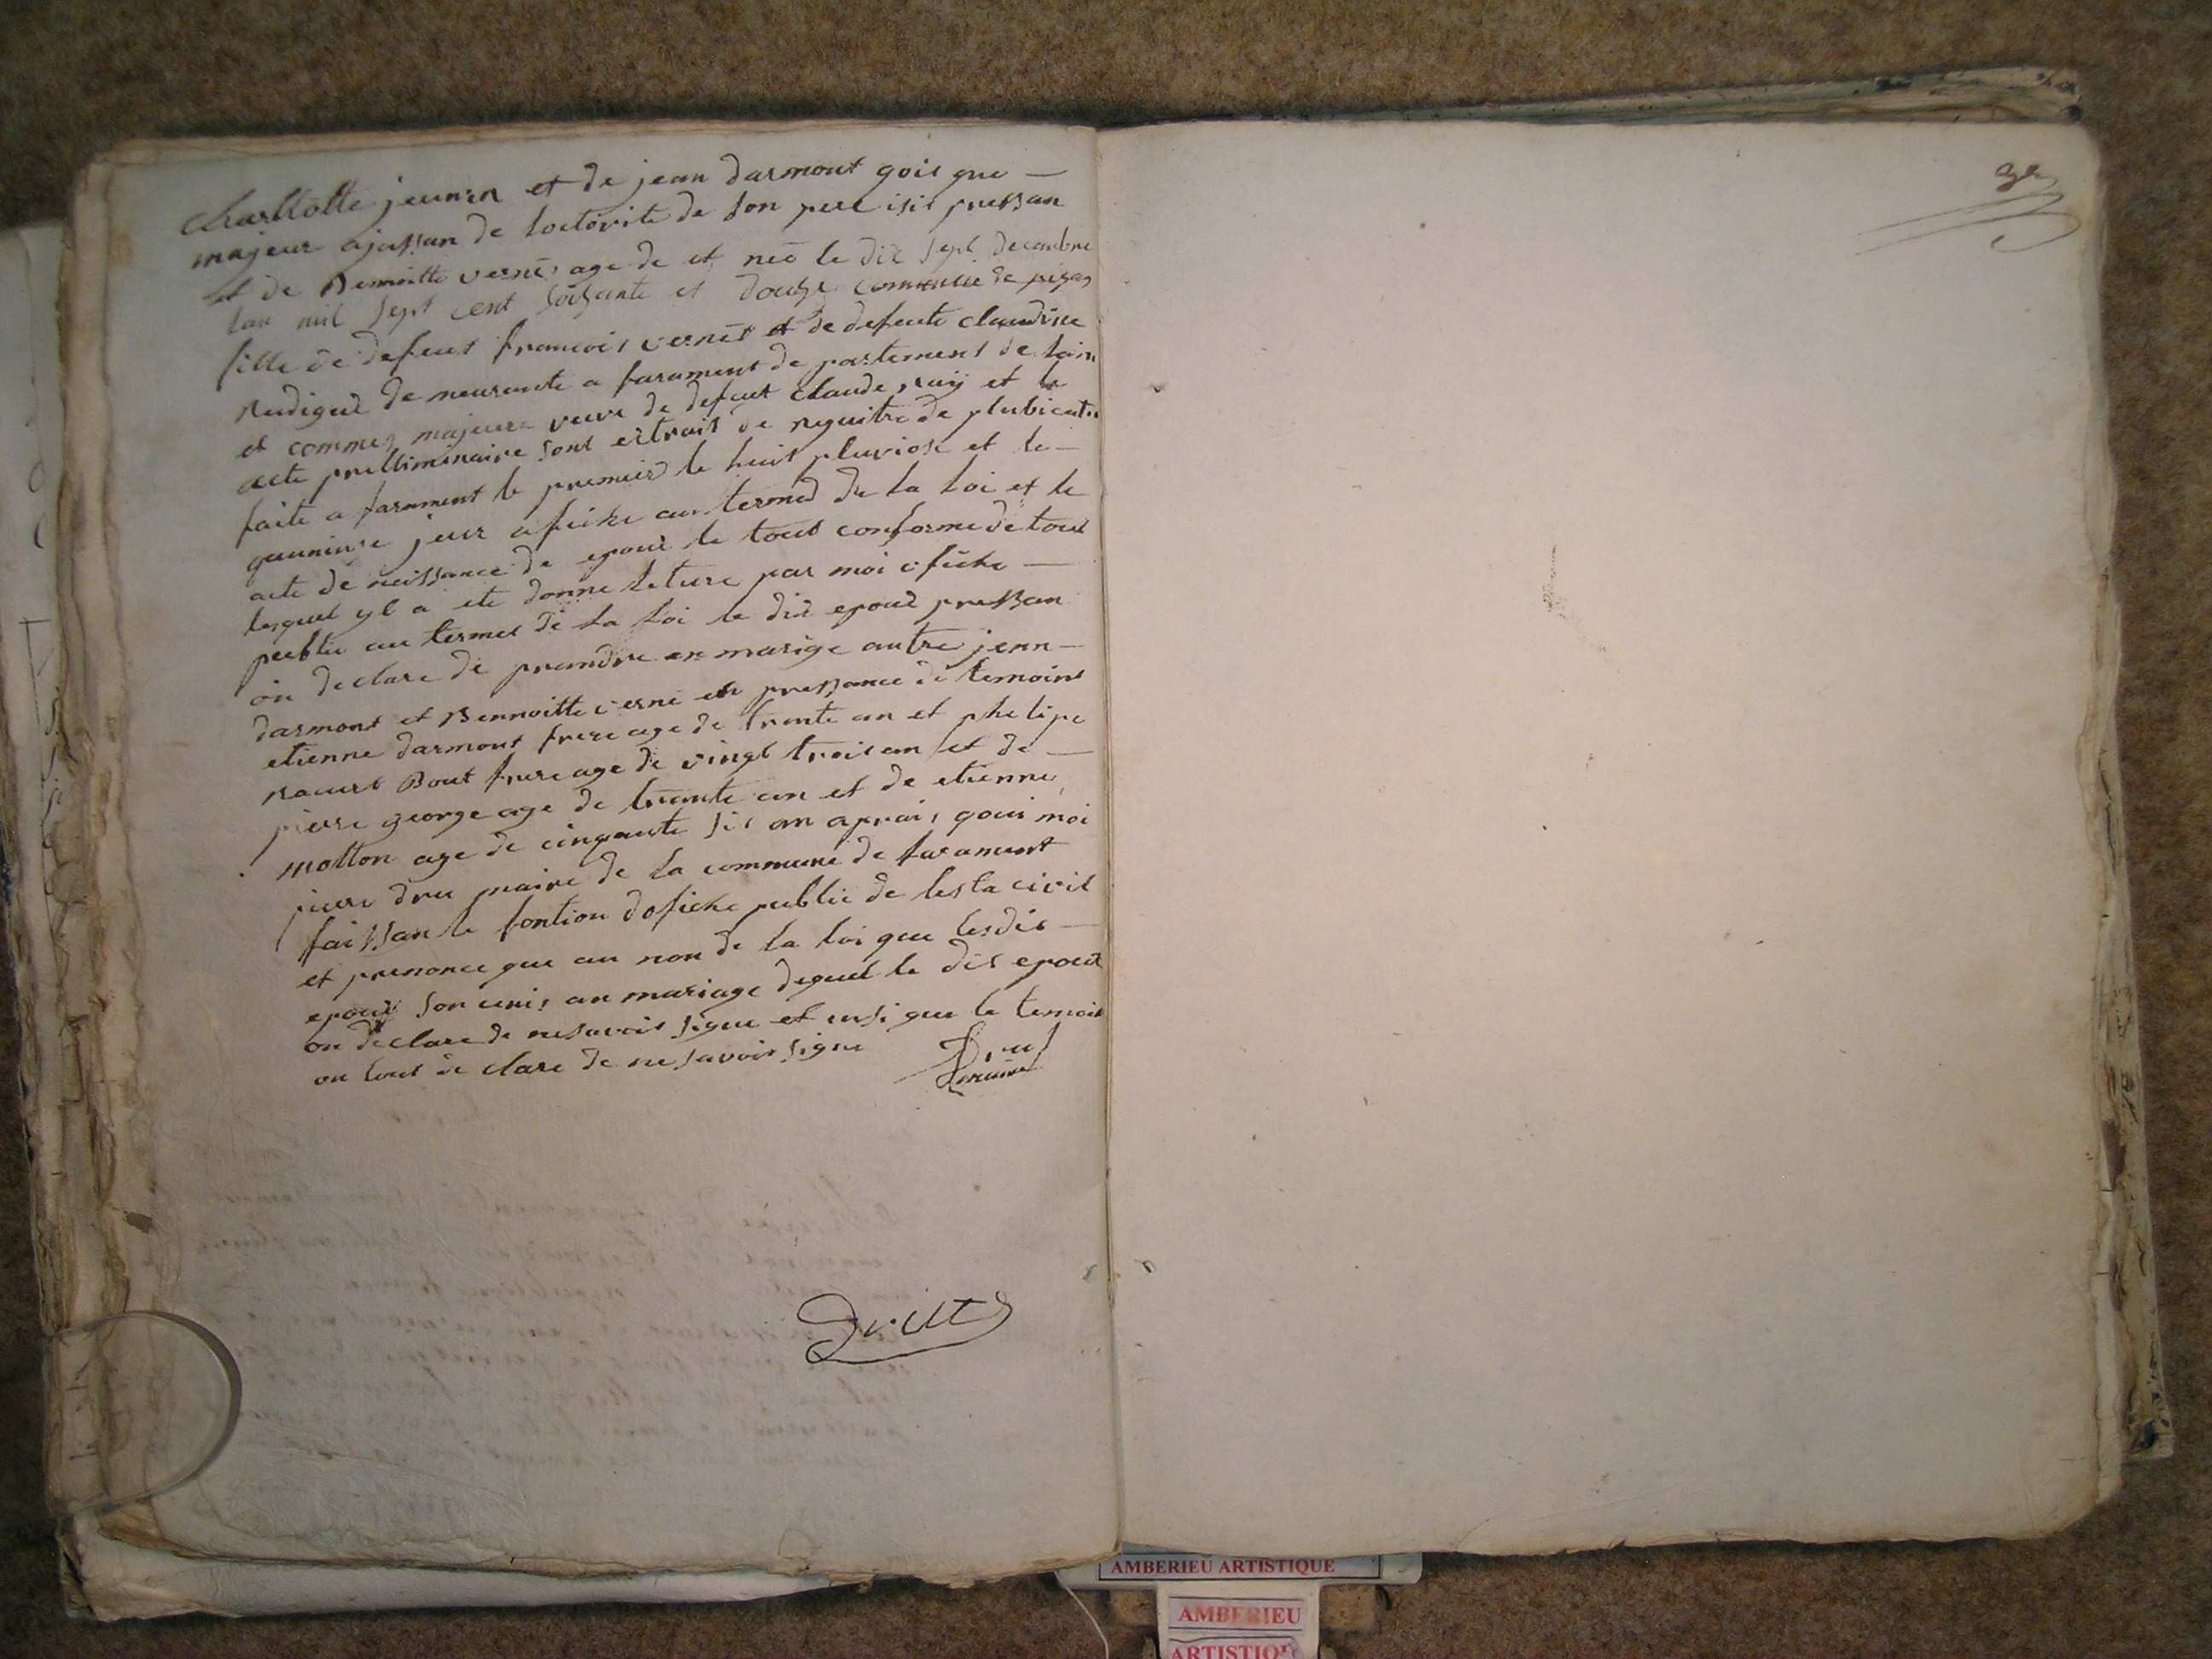 charllotte jeunen et de jean darmont gois que
majeur ajissan de loctorite de son pere isis pressan
et de Bennoitte vernē age de et neē le dix sept decanbre
lan nuil sept cent soisante et douse commune de
fille de defeut francois vernēt et de defeute claudine
de meurante a faramant de partement de lain
et comme majeure veuve de defeut claude ray et le
acte prelliminaire sont extrait de reguitre de plubicatio
faite a faramant le premier le huit pluviose et le
jeur afiche au termes de la loi et le
acte de neissance de epoux le tout conforme de tous
lesquel yl a ete donne leture par moi ofiche
peublie au termes de la loi le dix epoux pressan
on declare de prandre en marige autre jean
darmont et Bennoitte verne en pressance de temoins
etienne darmont frere age de trante an et phelipe
Bout frere age de vingt trois an et de
piere george age de trante an et de etienne
motton age de cinquante sis an aprais qoui moi
piere dru maire de la commune de faramant
faissan le fontion dofiche public de lesta civil
et prenonce que au non de la loi que lesdis
epoux son unis an mariage dequel le dis epoux
on declare de ne savoir signe et insi que le temoin
on tout declare de ne savoir signe
Dru
maire
Druet
AMBERIEU ARTISTIQUE
AMBERIEU
ARTISTIQUE